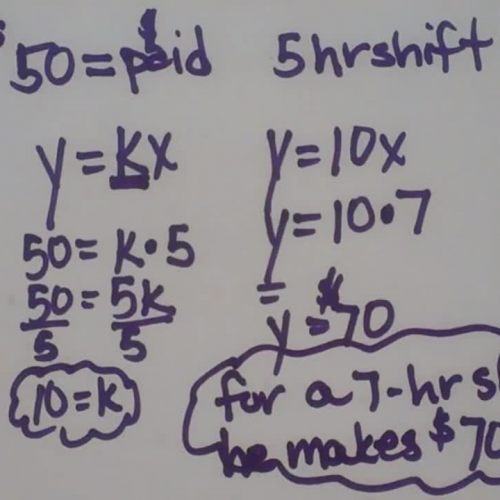 $50 = paid
5hr shift
y = kx
50 = k•5
50/5 = 5k/5
10 = k
y = 10x
y = 10•7
y = $70
for a 7-hr
he makes $70